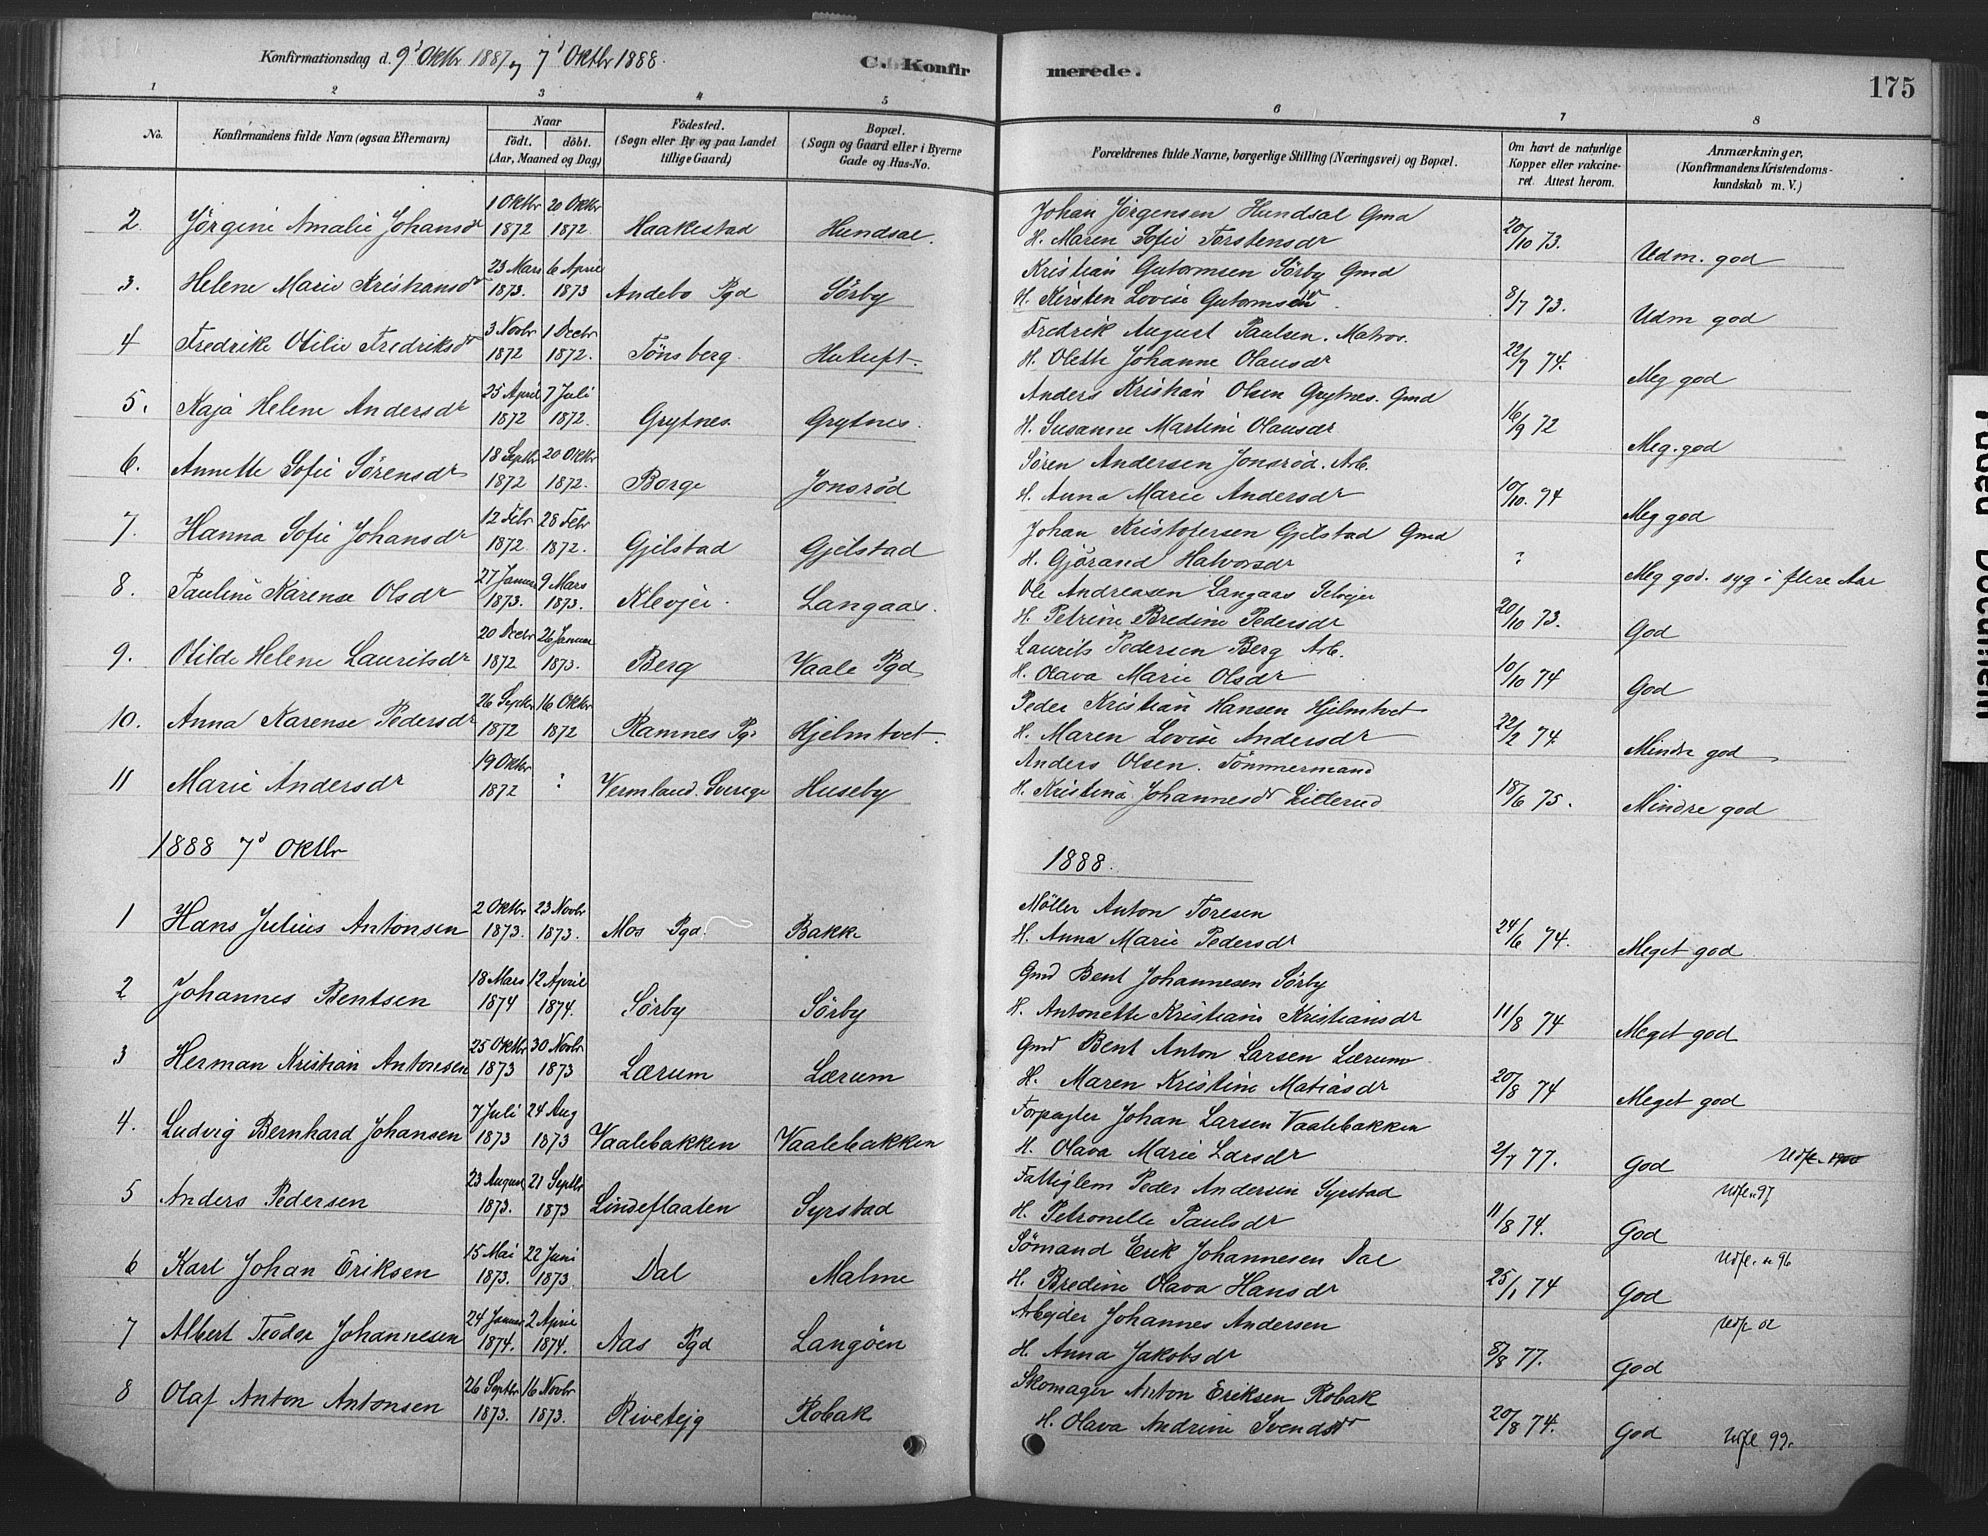 Konfirmationsdag d. 9d Oktbr 1887 og 7d Oktbr 1888.
C. Konfirmerede.
175
1 2 3 4 5 6 7 8
No. Konfirmandens fulde Navn (ogsaa Efternavn) Naar født. døbt. (Aar, Maaned og Dag) Fødested. (Sogn eller By og paa Landet tillige Gaard) Bopæl. (Sogn og Gaard eller i Byerne Gade og Hus-No. Forældrenes fulde Navne, borgerlige Stilling (Næringsvei) og Bopæl. Om havt de naturlige Kopper eller vakcineret. Attest herom. Anmærkninger. (Konfirmandens Kristendomskundskab m. V.)
2. Jörgine Amalie Johansdr 1 Oktbr 1872 20 Oktbr 1872. Haakestad Hundsal. Johan Jörgensen Hundsal Gmd
H. Maren Sofie Torstensdr 20/10 73. Udm. god
3. Helene Marie Kristiansdr 23 Mars 1873. 6 April 1873 Andebo Pgd Sörby Kristian Gutormsen Sörby Gmd
H. Kirsten Lovise Gutormsdr 8/7 73. Udm god
4 Fredrike Otilie Fredriksdr 3 Novbr 1872 1 Decbr 1872. Tönsberg. Hutuft. Fredrik August Paulsen. Matros.
H. Olette Johanne Olausdr 22/7 74. Meg god
5. Kaja Helene Andersdr 25 April 1872 7 Juli 1872. Grytnes. Grytnes. Anders Kristian Olsen Grytnes. Gmd
H. Susanne Martine Olausdr 16/9 72 Meg. god
6. Annette Sofie Sörensdr 18 Septbr 1872 20 Oktbr 1872. Borge Jonsröd Sören Andersen Jonsröd. Arb.
H. Anna Marie Andersdr 10/10. 74 Meg god
7. Hanna Sofie Johansdr 12 Febr 1872 28 Febr 1872. Gjelstad Gjelstad Johan Kristofersen Gjelstad Gmd
H. Gjörand Halvorsdr : Meg god. syg i flere Aar
8. Pauline Karense Olsdr 27 Januar 1873. 9 Mars 1873. Klevjer. Langaas. Ole Andreasen Langaas Selvejer
H. Petrine Bredine Pedersdr 20/10 73. God
9. Otilde Helene Lauritsdr 20 Decbr 1872 26 Januar 1873. Berg Vaale Pgd Laurits Pedersen Berg Arb.
H. Olava Marie Olsdr 10/10 74 God
10. Anna Karense Pedersdr 26 Septbr 1872 16 Oktbr 1872 Ramnes Pgd Hjelmtvet. Peder Kristian Hansen Hjelmtvet
H. Maren Lovise Andersdr 22/2 74. Mindre god
11 Marie Andersdr 19 Oktbr 1872 : Vermland. Sverige Huseby Anders Olsen. Tömmermand
H. Kristina Johannesdr Litterud 18/6 75. Mindre god
1888 7d Oktbr 1888.
1 Hans Julius Antonsen 2 Oktbr 1873. 23 Novbr 1873. Mos Pgd. Bakke Möller Anton Toresen
H. Anna Marie Pedersdr 24/6 74. Meget god
2 Johannes Bentsen 18 Mars 1874 12 April 1874. Sörby Sörby Gmd Bent Johannesen Sörby
H. Antonette Kristiane Kristiansdr 11/8 74 Meget god
3 Herman Kristian Antonsen 25 Oktbr 1873 30 Novbr 1873 Lærum Lærum Gmd Bent Anton Larsen Lærum
H. Maren Kristine Matiasdr 20/8 74 Meget god
4. Ludvig Bernhard Johansen 7 Juli 1873 24 Aug 1873 Vaalebakken Vaalebakken Forpagter Johan Larsen Vaalebakken
H. Olava Marie Larsdr 2/7 77. God Udfl.
5 Anders Pedersen 23 August 1873. 21 Septbr 1873 Lindeflaaten Syrstad Fattiglem Peder Andersen Syrstad
H. Petronelle Paulsdr 11/8 74. God Udfl. 97
6 Karl Johan Eriksen 15 Mai 1873. 22 Juni 1873. Dal Malme Sömand Erik Johannesen Dal
H. Bredine Olava Hansdr 25/1 74 God Udfl. 96
7 Albert Teodor Johannesen 24 Januar 1874. 2 April 1874. Aas Pgd Langöen Arbejder Johannes Andersen
H. Anna Jakobsdr 8/8 77. God Udfl 02
8 Olaf Anton Antonsen 26 Septbr 1873. 16 Novbr 1873. Rivetejg Robak Skomager Anton Eriksen Robak
H. Olava Andrine Svendsdr 20/8 74. God Udfl. 99.